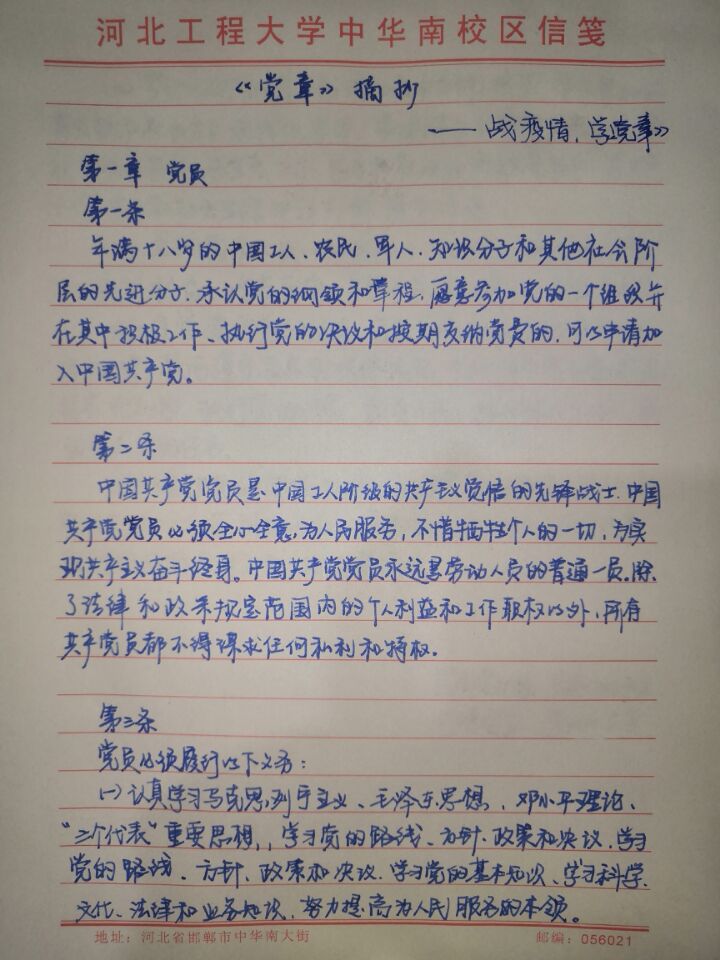 河北工程大学中华南校区信笺
《党章》摘抄
——战疫情，学党章》
第一章 党员
第一条
年满十八岁的中国工人、农民、军人、知识分子和其他社会阶
层的先进分子，承认党的纲领和章程，愿意参加党的一个组织并
在其中积极工作、执行党的决议和按期交纳党费的，可以申请加
入中国共产党。
第二条
中国共产党党员是中国工人阶级的共产主义觉悟的先锋战士，中国
共产党党员必须全心全意为人民服务，不惜牺牲个人的一切，为实
现共产主义奋斗终身。中国共产党党员永远是劳动人员的普通一员。除
了法律和政策规定范围内的个人利益和工作职权以外，所有
共产党员都不得谋求任何私利和特权。
第三条
党员必须履行以下义务：
(一)认真学习马克思列宁主义、毛泽东思想、邓小平理论、
“三个代表”重要思想，，学习党的路线、方针、政策和决议，学习
党的路线、方针、政策和决议，学习党的基本知识、学习科学、
文化、法律和业务知识，努力提高为人民服务的本领。
地址：河北省邯郸市中华南大街 邮编：056021